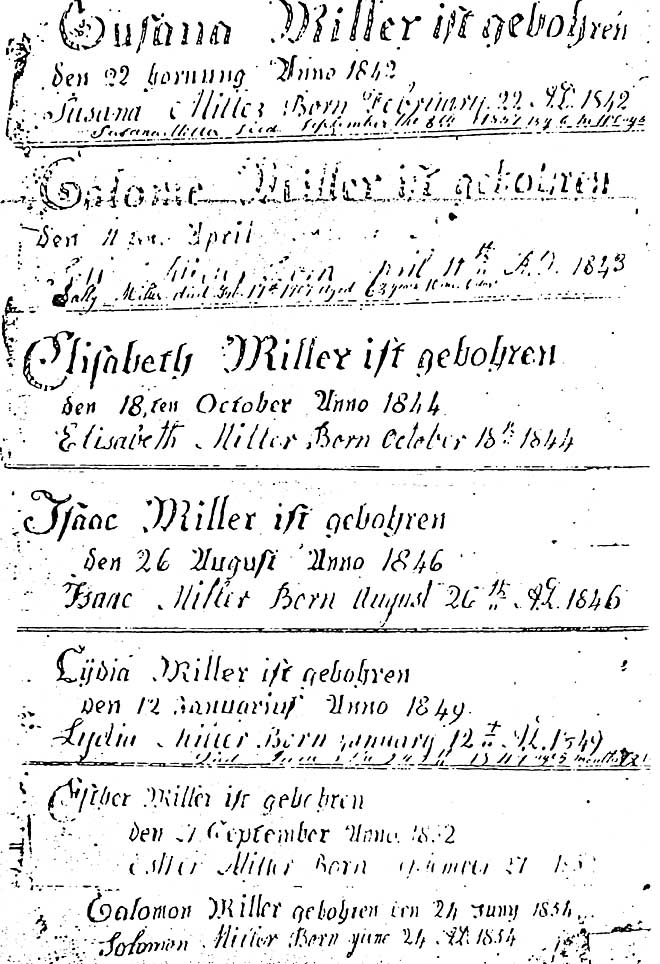 Susana Miller ist gebohren
den 22 hornung Anno 1842
Susana Miller Born February 22 AD. 1842
Susana Miller Died September the 8th
Salome Miller ist gebohren
den 11 April
Born April 11th A.D. 1843
Sally Miller died Feb. 17th aged 63 years 10 mo. 6 days
Elisabeth Miller ist gebohren
den 18,ten October Anno 1844
Elisabeth Miller Born October 18th 1844
Isaac Miller ist gebohren
den 26 August Anno 1846
Isaac Miller Born August 26th AD. 1846
Lÿdia Miller ist gebohren
den 12 Januarius Anno 1849
Lydia Miller Born January 12th AD. 1849
Died
Esther Miller ist gebohren
den 21 September Anno 1852
Esther Miller Born September 21 1852
Salomon Miller gebohren den 24 Juny 1854
Solomon Miller Born June 24 AD. 1854